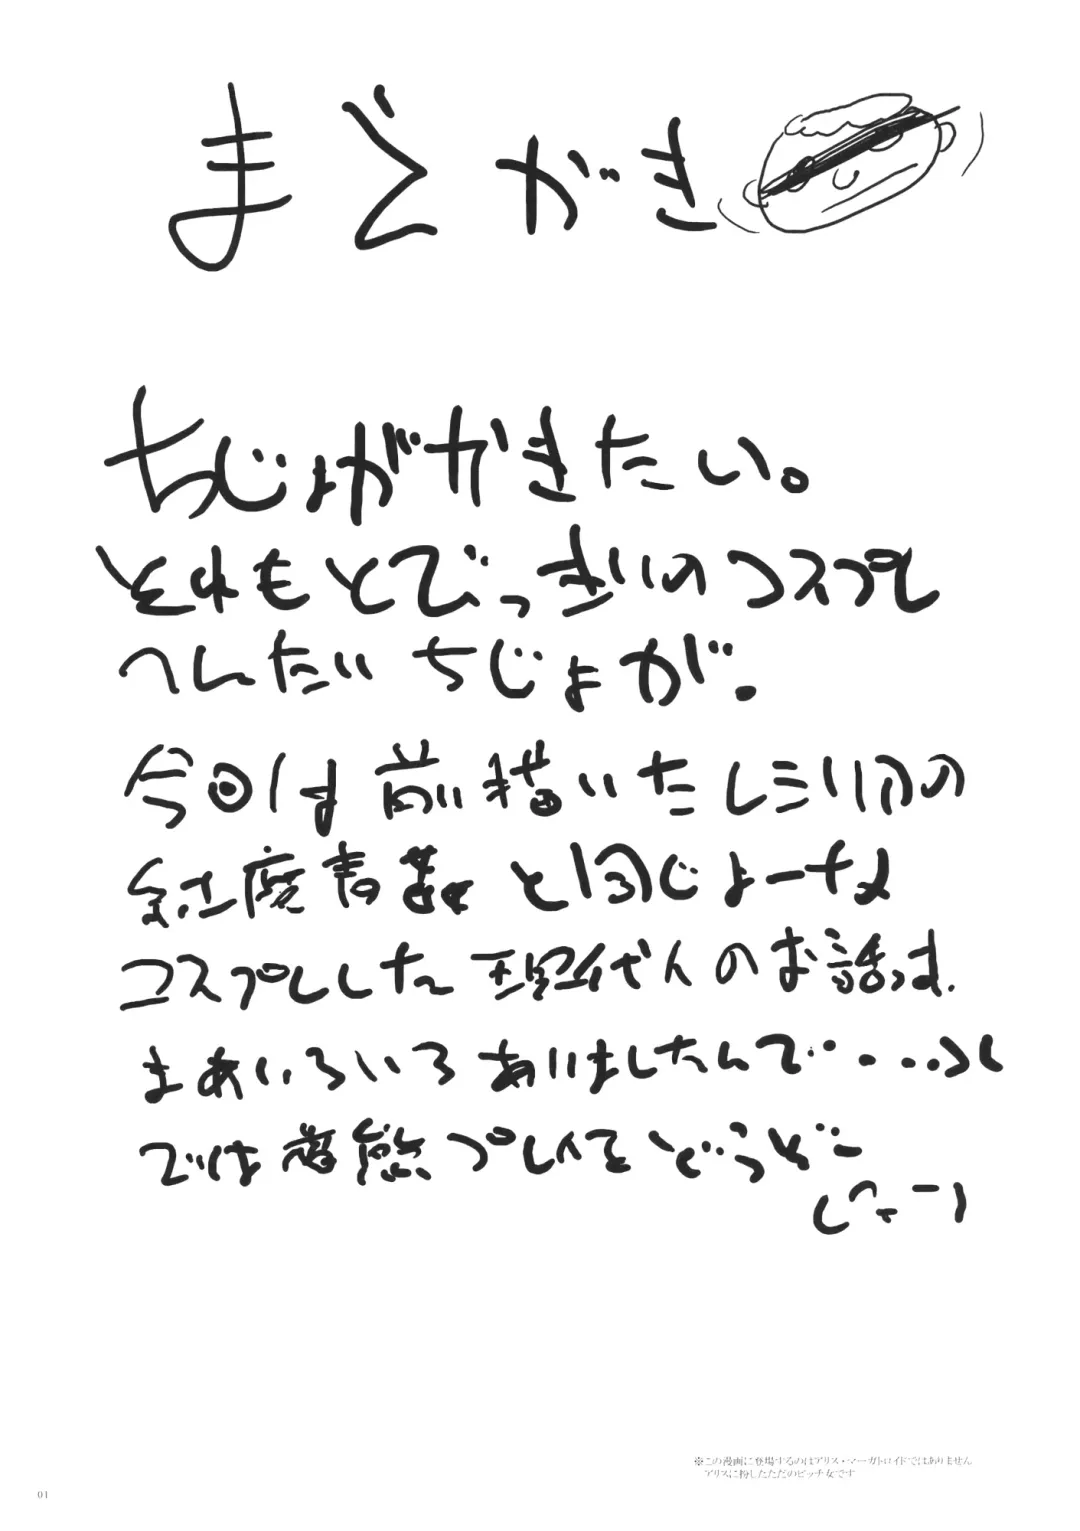 まえがき
ちじょがかきたい。
それもとびっきりのコスプレ
へんたいちじょが。
今回は前描いたレミリアの
と同じよーな
コスプレした現代人のお話っす.
まあいろいろありましたんで・・・・
では変態プレイをどうぞー
※この漫画に登場するのはアリス・マーガトロイドではありません
アリスに扮したただのビッチ女です
01